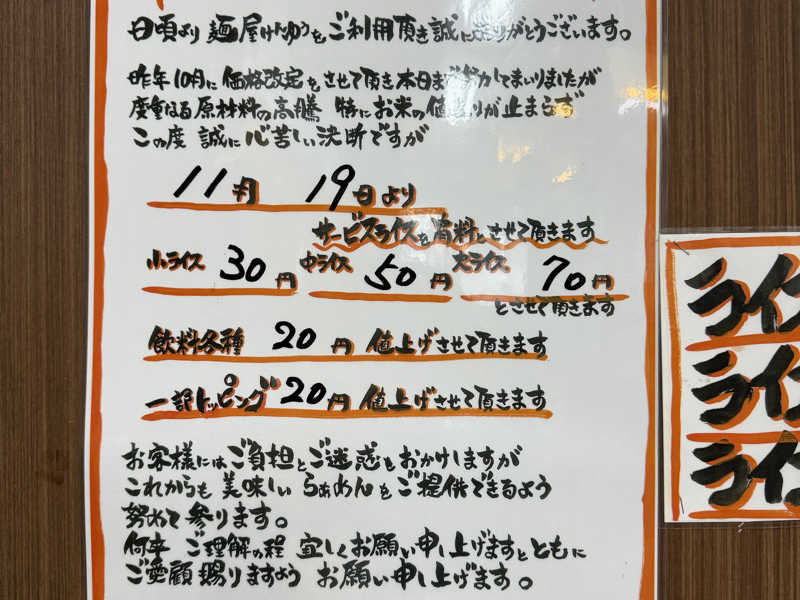 日頃より 麺屋けんゆうをご利用頂き誠にありがとうございます。
昨年10月に 価格改定をさせて頂き本日まで努力してまいりましたが
度重なる原材料の高騰 特にお米の値上りが止まらず
この度 誠に心苦しい決断ですが
11月 19日より
サービスライスを有料とさせて頂きます
小ライス 30円 中ライス 50円 大ライス 70円
とさせて頂きます
飲料各種 20円 値上げさせて頂きます
一部トッピング20円 値上げさせて頂きます
お客様にはご負担とご迷惑をおかけしますが
これからも 美味しい らぁめんをご提供できるよう
努めて参ります。
何卒 ご理解の程 宜しくお願い申し上げますとともに
ご愛顧賜りますよう お願い申し上げます。
ライ
ライ
ライ